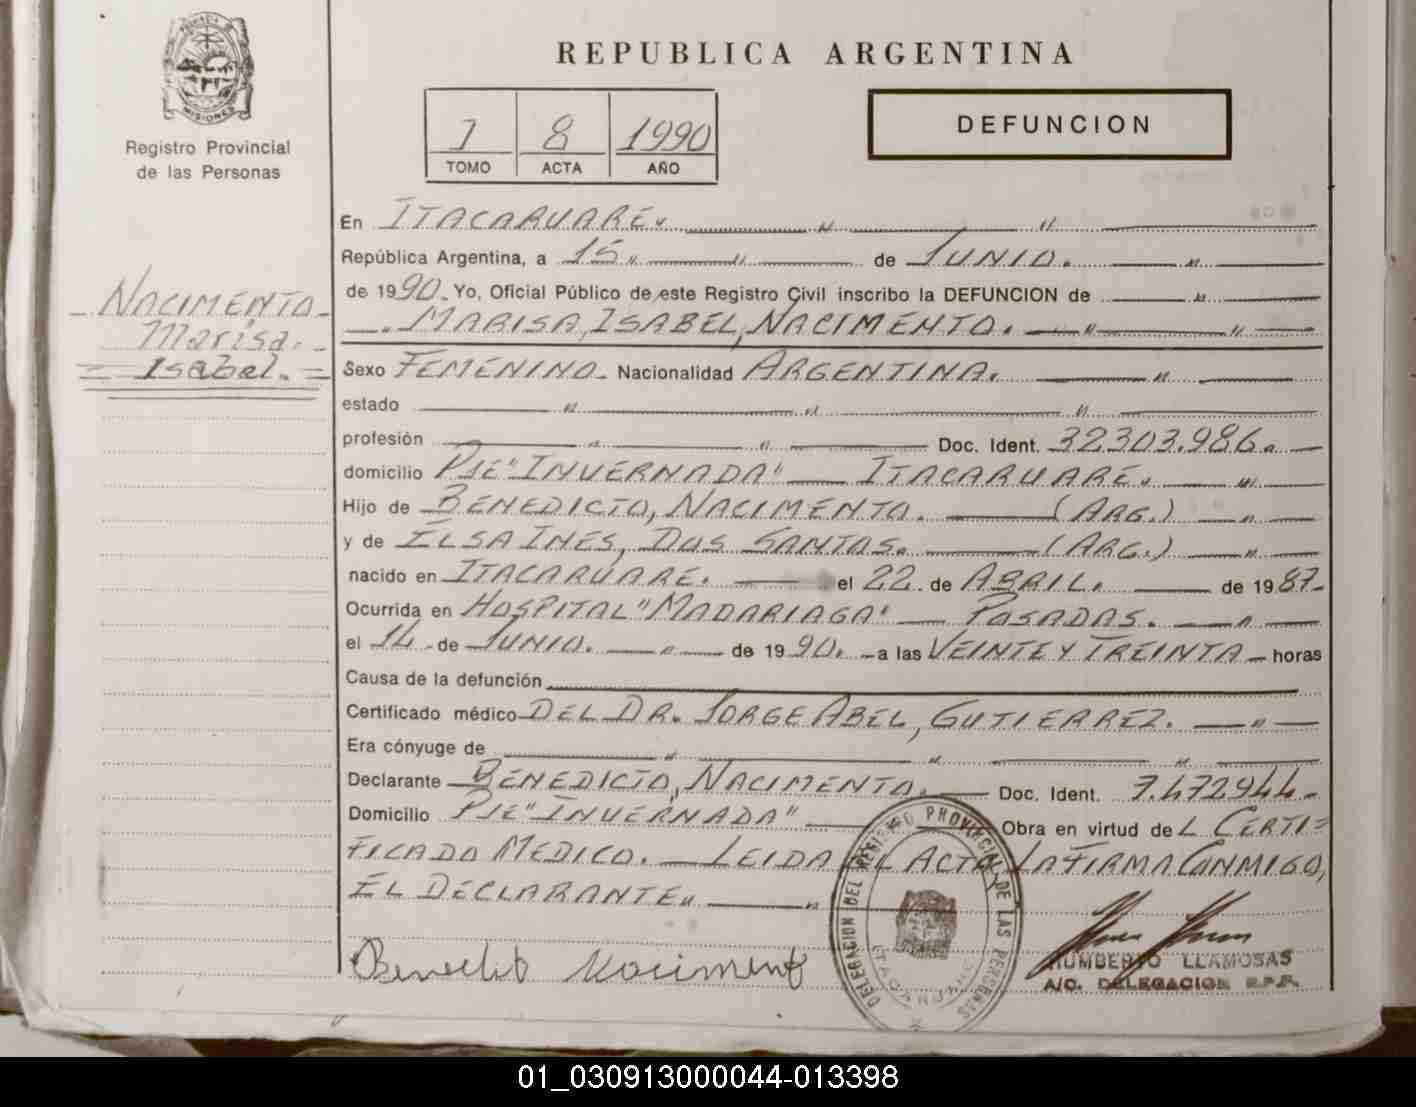 PROVINCIA DE
MISIONES
Registro Provincial
de las Personas
REPUBLICA ARGENTINA
1 8 1990
TOMO ACTA AÑO
DEFUNCION
NACIMENTO
Marisa.
Isabel.
En ITACARUARE.
República Argentina, a 15 de JUNIO.
de 1990. Yo, Oficial Público de este Registro Civil inscribo la DEFUNCION de
MARISA, ISABEL, NACIMENTO.
Sexo FEMENINO. Nacionalidad ARGENTINA.
estado
profesión Doc. Ident. 32303.986.
domicilio PJE "INVERNADA" ITACARUARE.
Hijo de BENEDICTO, NACIMENTO. (ARG.)
y de ELSA INES, DOS SANTOS. (ARG.)
nacido en ITACARUARE. el 22. de ABRIL. de 1987-
Ocurrida en HOSPITAL "MADARIAGA" POSADAS.
el 14 de JUNIO. de 1990. a las VEINTE Y TREINTA horas
Causa de la defunción
Certificado médico DEL DR. JORGE ABEL, GUTIERREZ.
Era cónyuge de
Declarante BENEDICTO, NACIMENTO. Doc. Ident. 7.472944-
Domicilio PJE "INVERNADA" Obra en virtud de L CERTI=
FICADO MEDICO. LEIDA EL ACTA, LA FIRMA CONMIGO,
EL DECLARANTE.
Benedicto Naciment
DELEGACION DEL REGISTRO PROVINCIAL DE LAS PERSONAS
ITACARUARE
HUMBERTO LLAMOSAS
A/C. DELEGACION R.P.P.
01_030913000044-013398